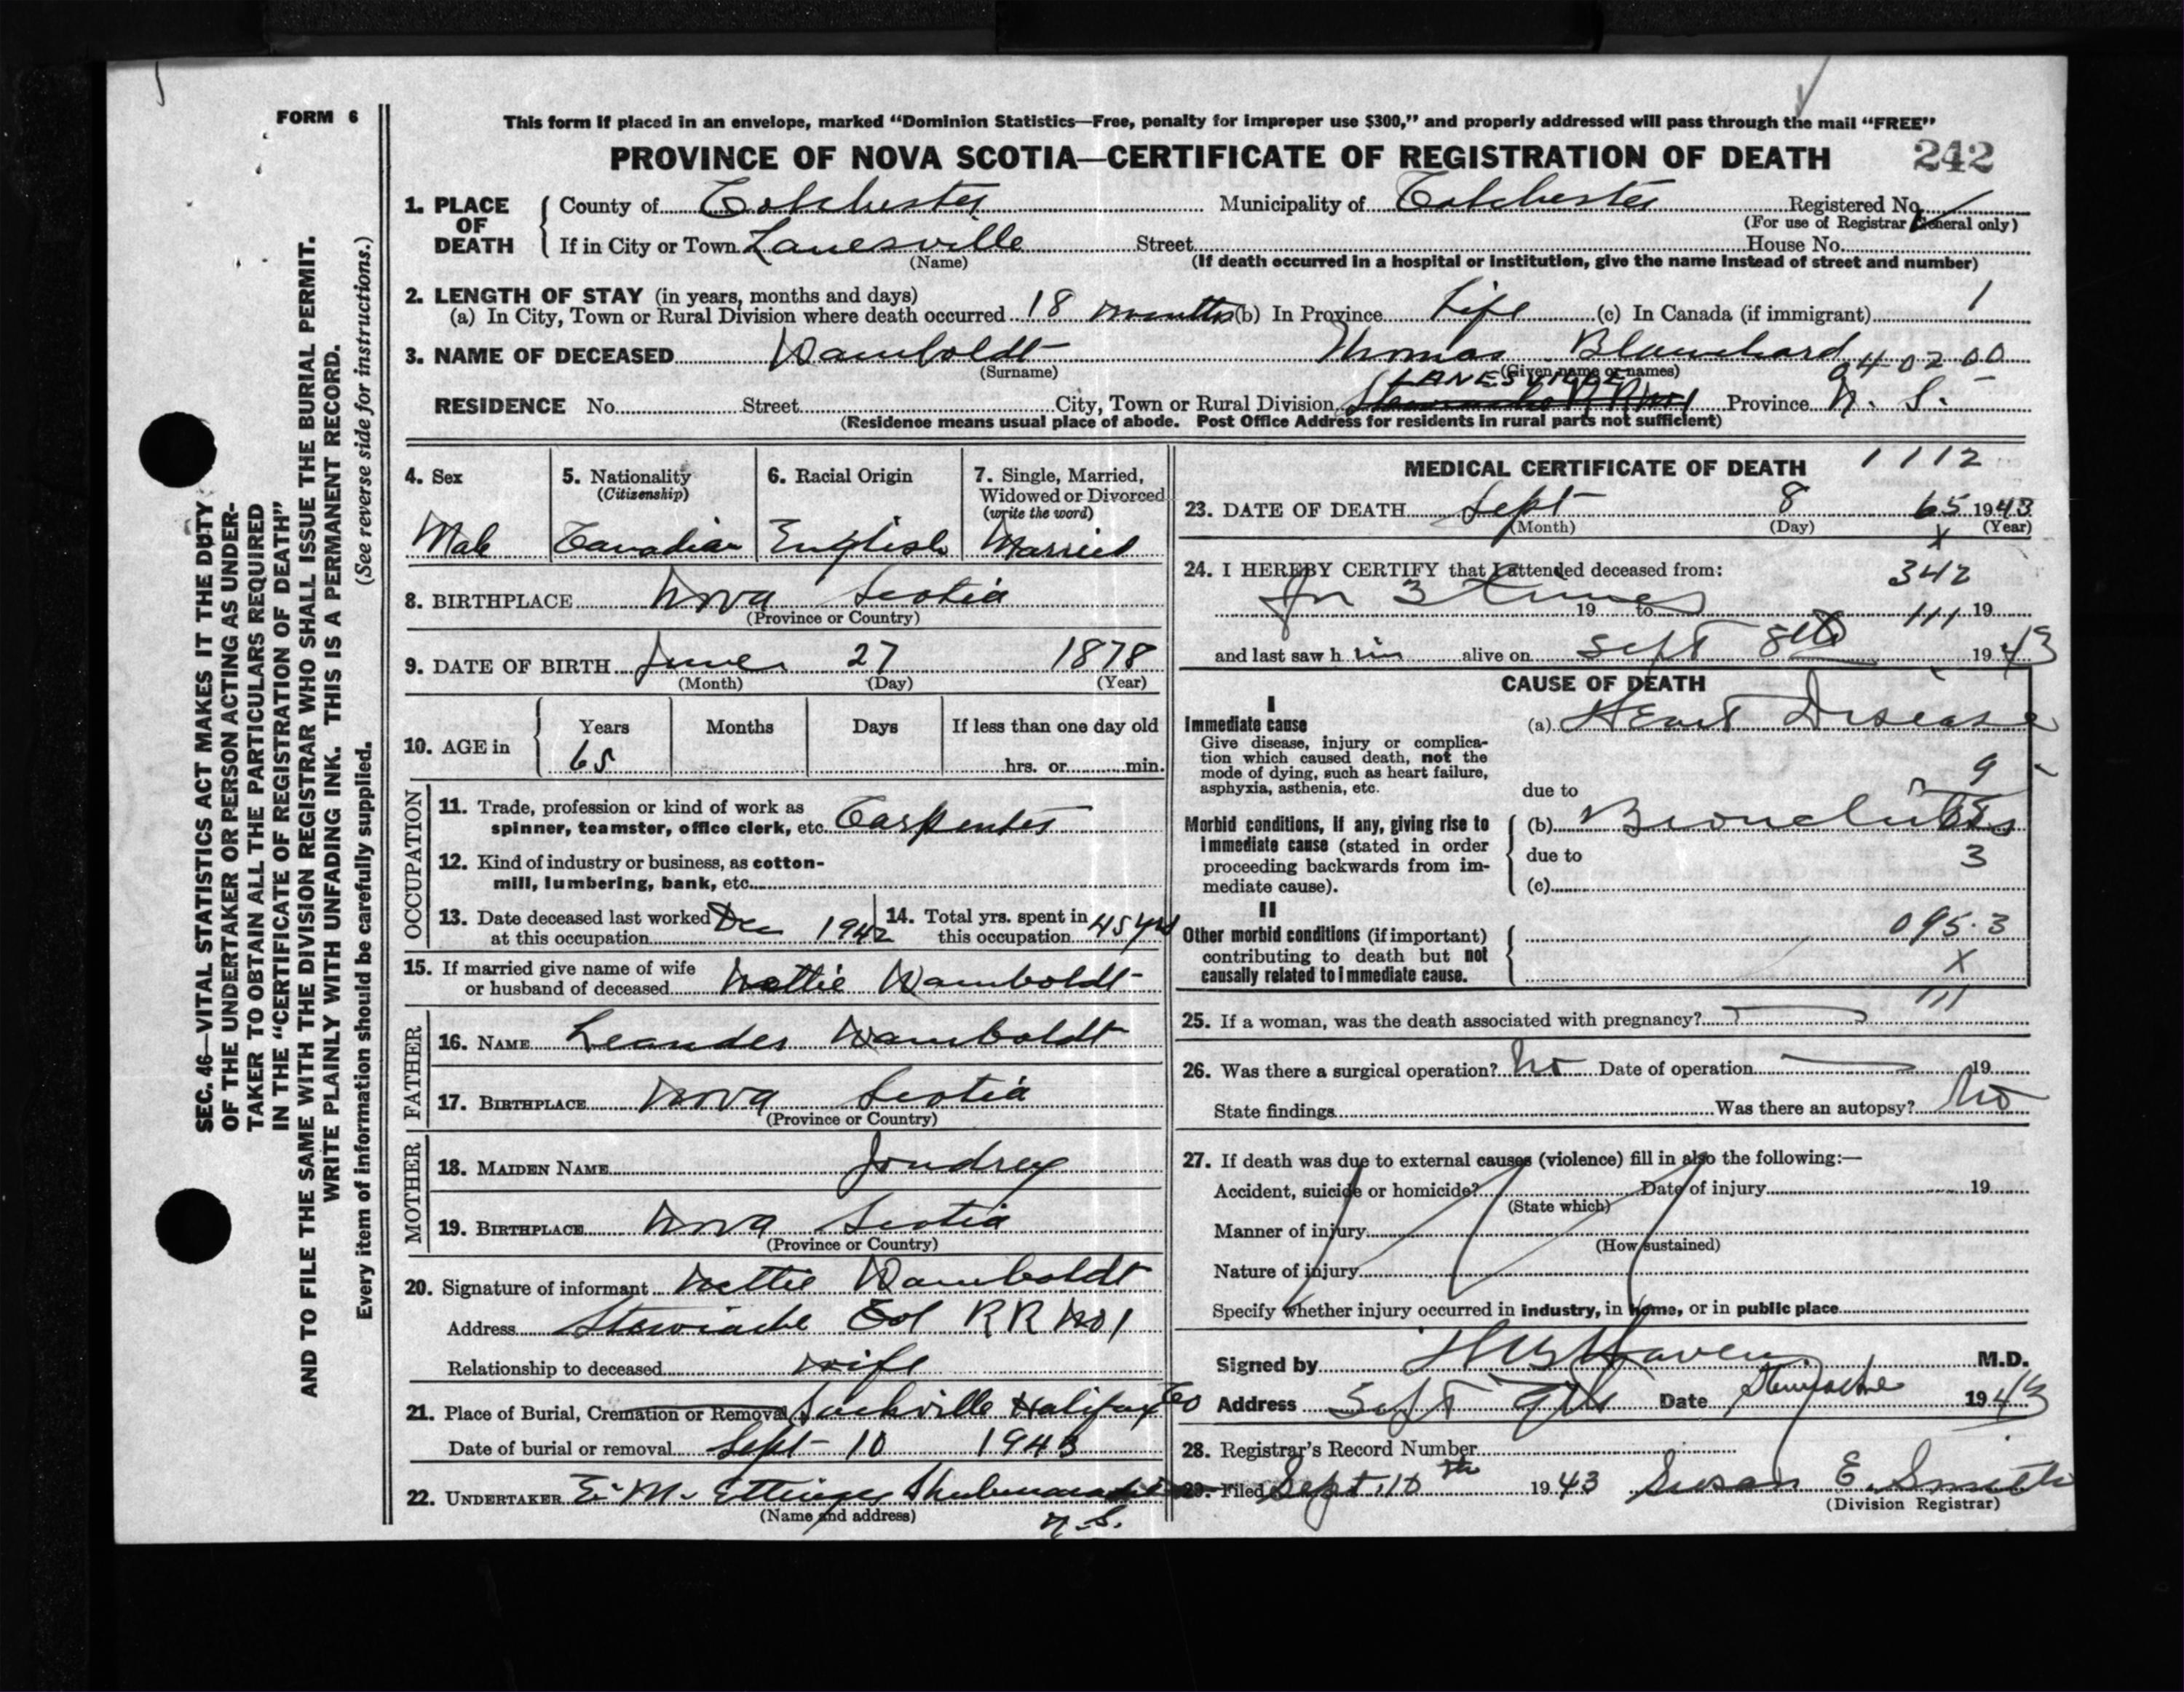 FORM 6
This form if placed in an envelope, marked "Dominion Statistics—Free, penalty for improper use $300," and properly addressed will pass through the mail "FREE"
PROVINCE OF NOVA SCOTIA—CERTIFICATE OF REGISTRATION OF DEATH 242
1. PLACE OF DEATH
County of Colchester Municipality of Colchester Registered No.
(For use of Registrar General only)
If in City or Town Lanesville Street House No.
(Name) (If death occurred in a hospital or institution, give the name instead of street and number)
2. LENGTH OF STAY (in years, months and days)
(a) In City, Town or Rural Division where death occurred 18 months (b) In Province Life (c) In Canada (if immigrant) 1
3. NAME OF DECEASED Wamboldt Thomas Blanchard
(Surname) (Given name or names) 94-02.00
LANESVILLE
RESIDENCE No. Street City, Town or Rural Division Stewiacke R R No 1 Province N. S.
(Residence means usual place of abode. Post Office Address for residents in rural parts not sufficient)
4. Sex
Male
5. Nationality
(Citizenship)
Canadian
6. Racial Origin
English
7. Single, Married,
Widowed or Divorced
(write the word)
Married
8. BIRTHPLACE Nova Scotia
(Province or Country)
9. DATE OF BIRTH June 27 1878
(Month) (Day) (Year)
10. AGE in
Years Months Days If less than one day old
65 hrs. or min.
OCCUPATION
11. Trade, profession or kind of work as
spinner, teamster, office clerk, etc. Carpenter
12. Kind of industry or business, as cotton-
mill, lumbering, bank, etc.
13. Date deceased last worked
at this occupation Dec 1942
14. Total yrs. spent in
this occupation 45 yrs
15. If married give name of wife
or husband of deceased Nettie Wamboldt
FATHER
16. NAME Leander Wamboldt
17. BIRTHPLACE Nova Scotia
(Province or Country)
MOTHER
18. MAIDEN NAME Joudrey
19. BIRTHPLACE Nova Scotia
(Province or Country)
20. Signature of informant Nettie Wamboldt
Address Stewiacke Col R R No 1
Relationship to deceased wife
21. Place of Burial, Cremation or Removal Sackville Halifax Co
Date of burial or removal Sept 10 1943
22. UNDERTAKER E. M. Ettinger Shubenacadie
(Name and address) N.S.
MEDICAL CERTIFICATE OF DEATH 1112
23. DATE OF DEATH Sept 8 65 1943
(Month) (Day) (Year)
X
24. I HEREBY CERTIFY that I attended deceased from: 342
For 3 times 19 to 111 19
and last saw h im alive on Sept 8th 1943
CAUSE OF DEATH
I
Immediate cause
Give disease, injury or complica-
tion which caused death, not the
mode of dying, such as heart failure,
asphyxia, asthenia, etc.
(a) Heart Disease
9
due to
Morbid conditions, if any, giving rise to
immediate cause (stated in order
proceeding backwards from im-
mediate cause).
(b) Bronchitis
due to 3
(c)
II
Other morbid conditions (if important)
contributing to death but not
causally related to immediate cause.
095.3
X
111
25. If a woman, was the death associated with pregnancy?
26. Was there a surgical operation? No Date of operation 19
State findings Was there an autopsy? No
27. If death was due to external causes (violence) fill in also the following:—
Accident, suicide or homicide? Date of injury 19
(State which)
Manner of injury
(How sustained)
Nature of injury
Specify whether injury occurred in industry, in home, or in public place
Signed by M.D.
Address Sept 9th Date Stewiacke 1943
28. Registrar's Record Number
29. Filed Sept. 10th 1943 Susan E. Smith
(Division Registrar)
SEC. 46—VITAL STATISTICS ACT MAKES IT THE DUTY
OF THE UNDERTAKER OR PERSON ACTING AS UNDER-
TAKER TO OBTAIN ALL THE PARTICULARS REQUIRED
IN THE "CERTIFICATE OF REGISTRATION OF DEATH"
AND TO FILE THE SAME WITH THE DIVISION REGISTRAR WHO SHALL ISSUE THE BURIAL PERMIT.
WRITE PLAINLY WITH UNFADING INK. THIS IS A PERMANENT RECORD.
Every item of information should be carefully supplied. (See reverse side for instructions.)